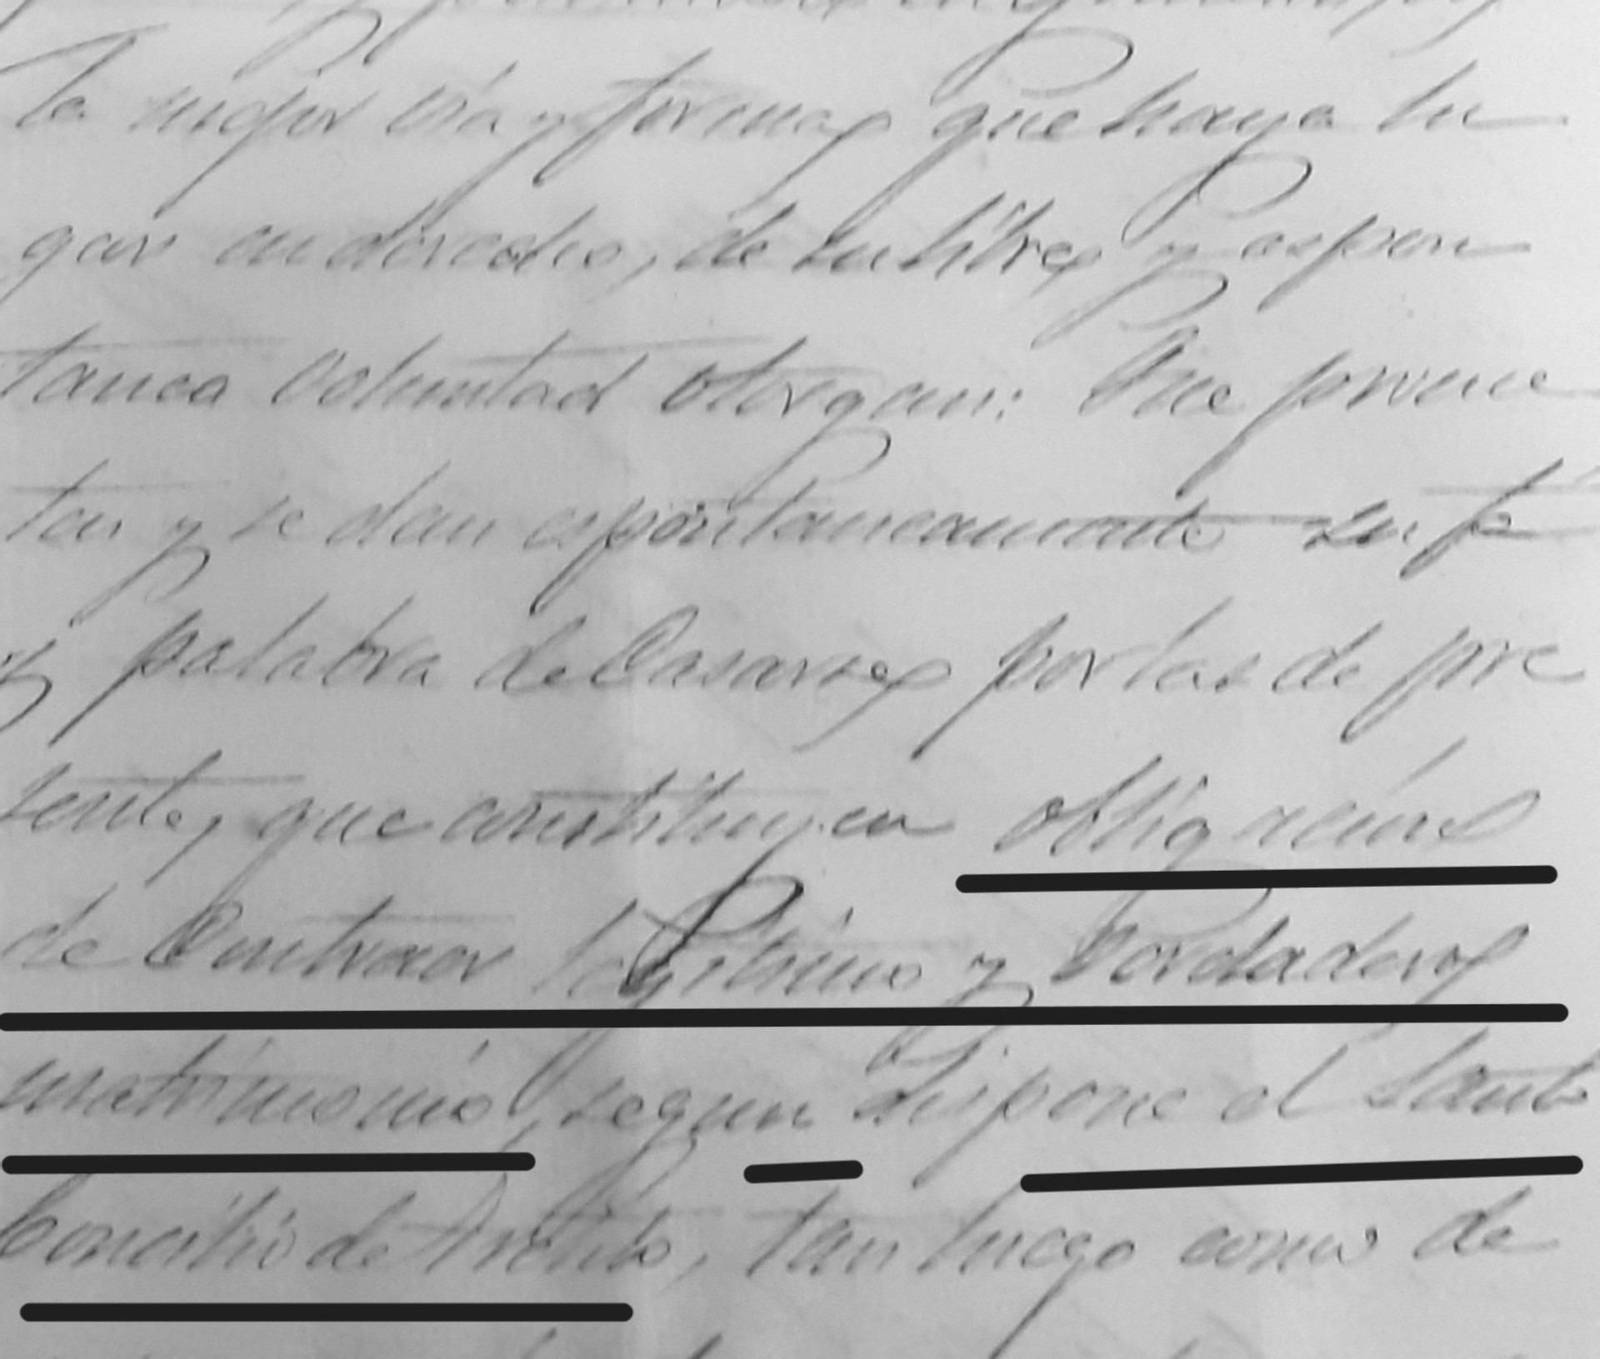 la mejor via y forma que haya lu
gar en derecho, de su libre y espon
tanea voluntad otorgan: Que prome
ten y se dan espontaneamente su fé
y palabra de Casarse por las de pre
sente, que constituyen obligacion
de Contraer legitimo y Verdadero
matrimonio, segun dispone el Santo
Concilio de Trento, tan luego como de